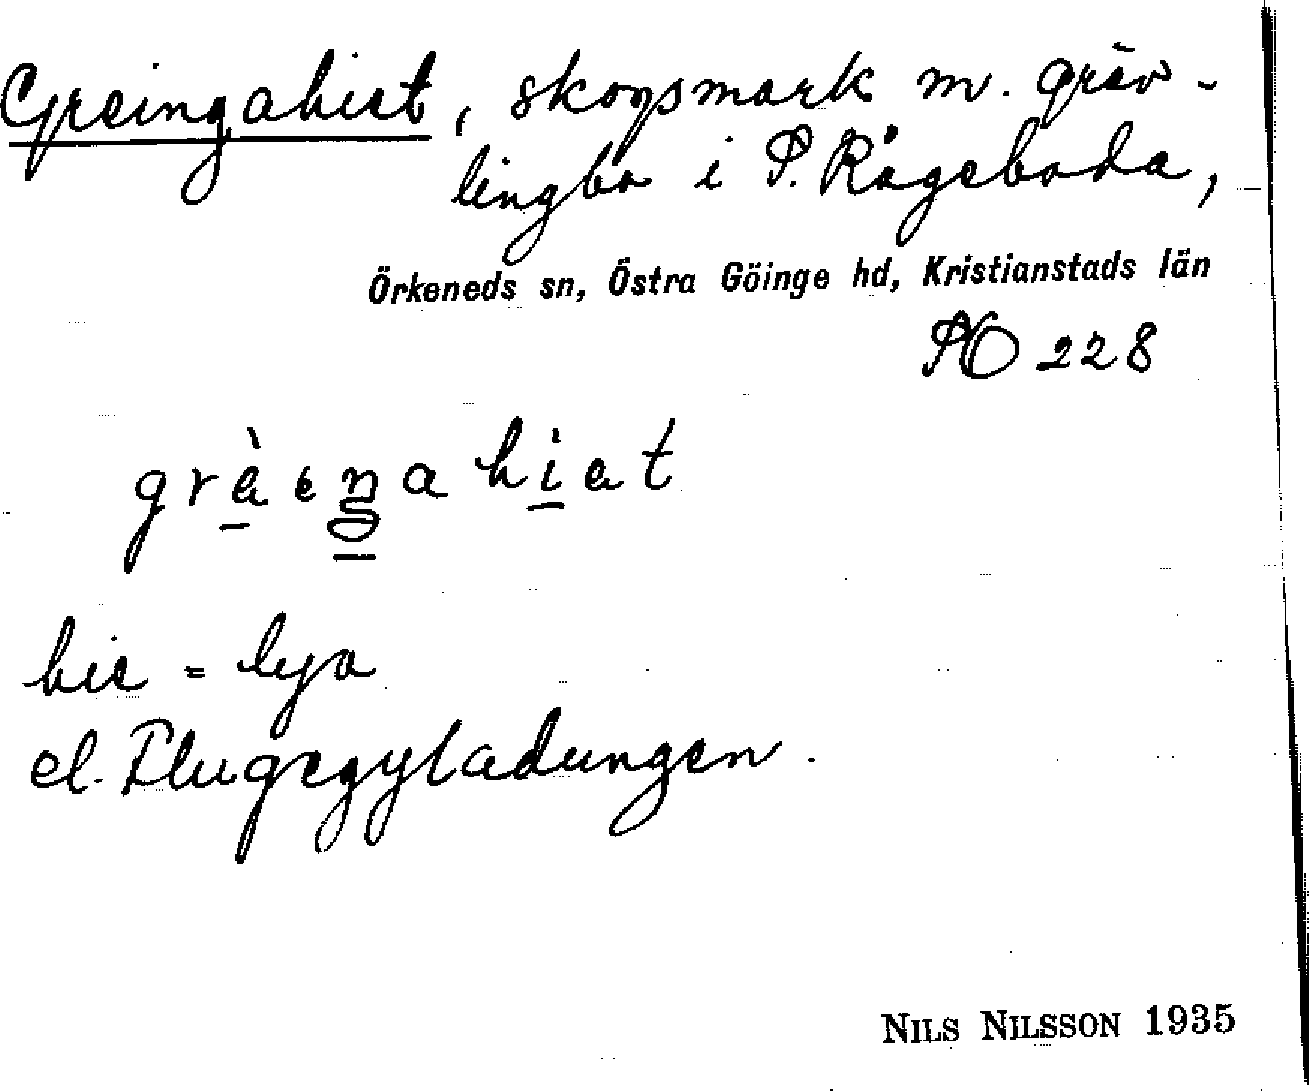 Greingahiet, skogsmark m. gräv-
lingbo i P. Rågeboda,
Örkeneds sn, Östra Göinge hd, Kristianstads län
228
hie = lya
el. Flugegyladungen.
NILS NILSSON 1935